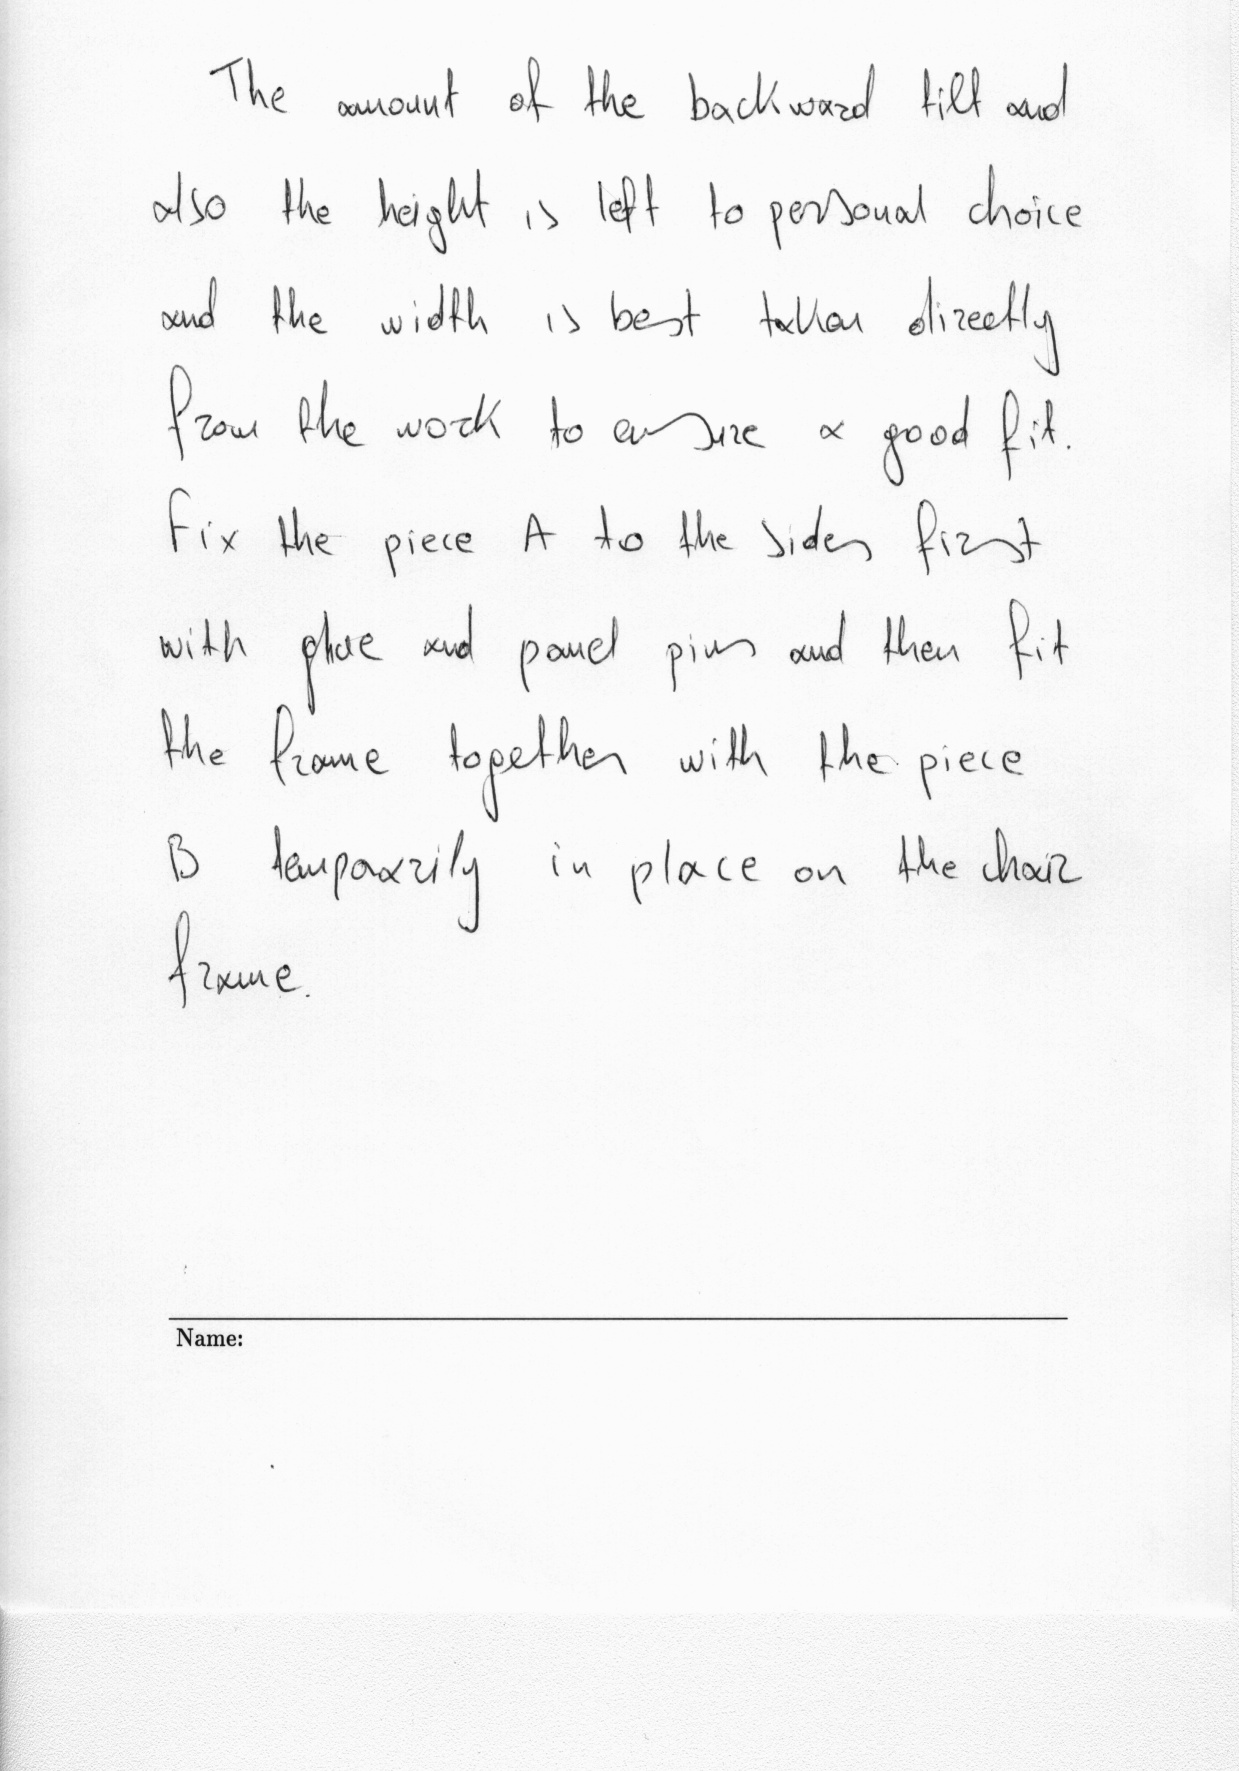 The amount of the backward tilt and
also the height is left to personal choice
and the width is best taken directly
from the work to ensure a good fit.
Fix the piece A to the sides first
with glue and panel pins and then fit
the frame together with the piece
B temporarily in place on the chair
frame.
Name: